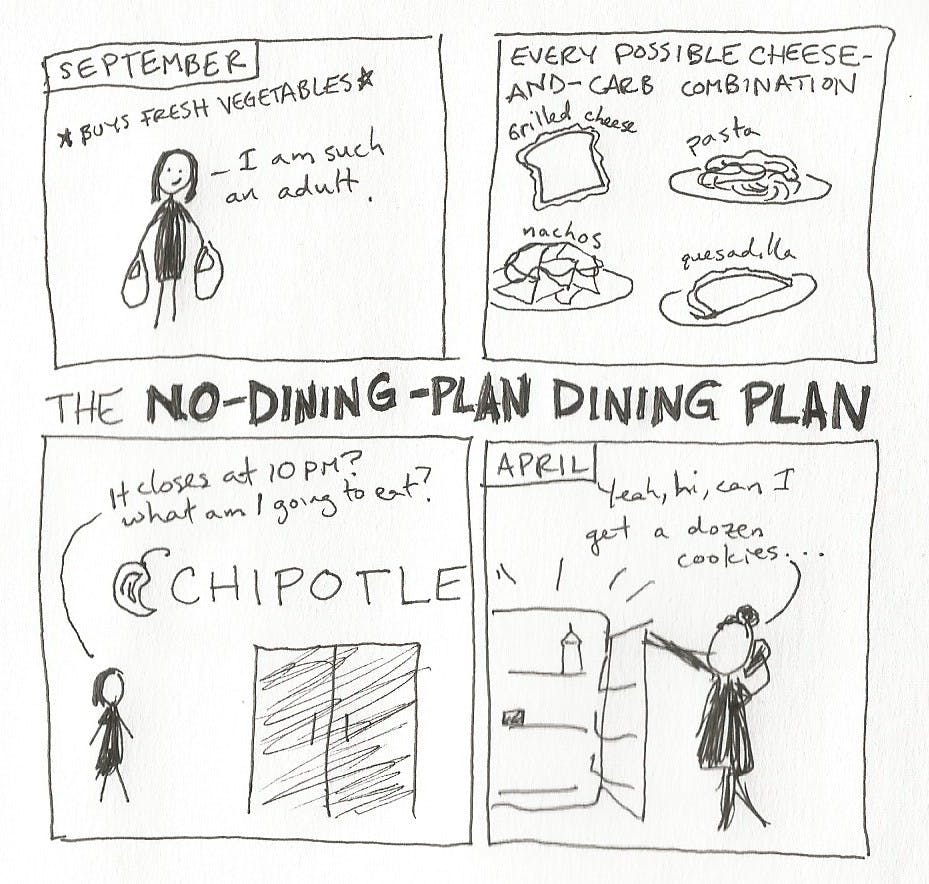 SEPTEMBER
*BUYS FRESH VEGETABLES*
I am such
an adult.
EVERY POSSIBLE CHEESE-
AND-CARB COMBINATION
Grilled cheese
pasta
nachos
quesadilla
THE NO-DINING-PLAN DINING PLAN
It closes at 10 PM?
what am I going to eat?
CHIPOTLE
APRIL
Yeah, hi, can I
get a dozen
cookies...